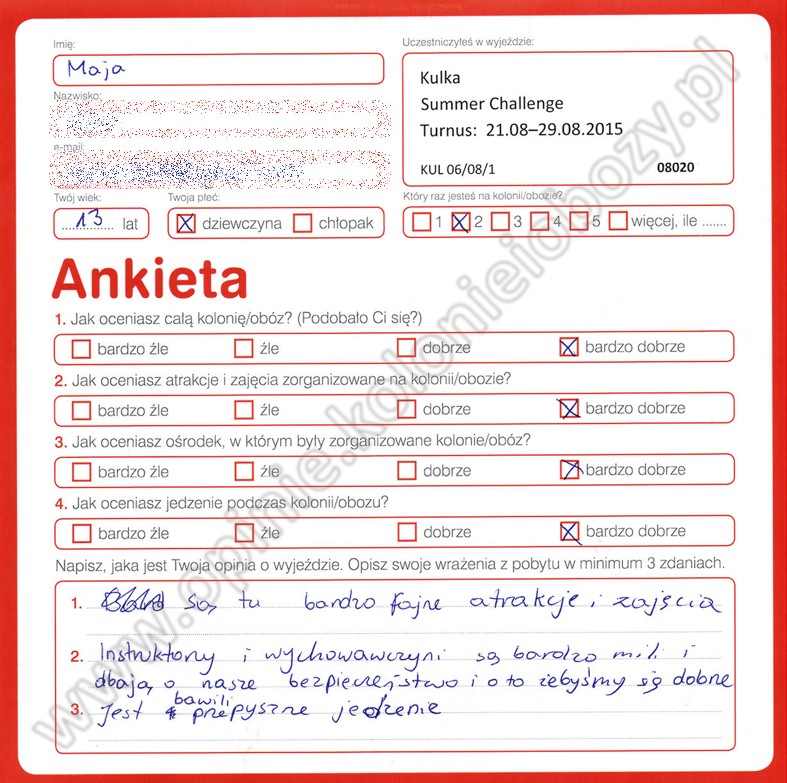 Imię:
Maja
Uczestniczyłeś w wyjeździe:
Kulka
Summer Challenge
Turnus: 21.08–29.08.2015
KUL 06/08/1 08020
Nazwisko:
e-mail:
Twój wiek:
13 lat
Twoja płeć:
dziewczyna chłopak
Który raz jesteś na kolonii/obozie?
1 2 3 4 5 więcej, ile .......
Ankieta
1. Jak oceniasz całą kolonię/obóz? (Podobało Ci się?)
bardzo źle źle dobrze bardzo dobrze
2. Jak oceniasz atrakcje i zajęcia zorganizowane na kolonii/obozie?
bardzo źle źle dobrze bardzo dobrze
3. Jak oceniasz ośrodek, w którym były zorganizowane kolonie/obóz?
bardzo źle źle dobrze bardzo dobrze
4. Jak oceniasz jedzenie podczas kolonii/obozu?
bardzo źle źle dobrze bardzo dobrze
Napisz, jaka jest Twoja opinia o wyjeździe. Opisz swoje wrażenia z pobytu w minimum 3 zdaniach.
1. są tu bardzo fajne atrakcje i zajęcia
2. Instruktorzy i wychowawczyni są bardzo mili i
dbają o nasze bezpieczeństwo i o to żebyśmy się dobrze
bawili
3. Jest przepyszne jedzenie
www.opinie.kolonieiobozy.pl